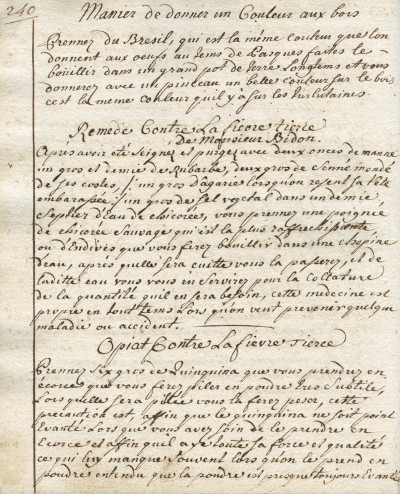 240
Manier de donner un Couleur aux bois
Prennez du Bresil, qui est la même Couleur que lon
donnent aux oeufs au tems de Pasques faites le
bouillir dans un grand pot de terre Longtems et vous
donnerez avec un pinceau un belle Couleur sur le boi
cest la meme couleur quil y a sur les
Remede Contre La fievre tierce
De Monsieur Bidon.
Apres avoir eté Seigné et purgé avec deux onces de manne
un gros et demie de Rubarbe, deux gros de Senné monde
de ses costes, un gros d'agaric lorsquon resent la tête
embarassée un gros de sel vegetal dans un demie
Septier d'Eau de chicorée, vous prennez une poignée
de chicorée Sauvage qui est la plus raffrechissante
ou d'Endives que vous ferez bouillir dans une chopine
d'eau, après quelle sera cuitte vous la passerez, et de
laditte eau vous vous en Servirez pour la Collature
de la quantité quil en sera besoin, cette medecine est
propre en tout tems Lors quon veut prevenir quelque
maladie ou accident.
Opiat Contre La fievre Tierce
Prennez Six gros de Quinquina que vous prendrez en
écorce que vous ferez piler en poudre tres Subtile,
Lors quelle sera pillée vous la ferez peser, cette
précaution est, affin que le quinquina ne soit point
Evanté Lors que vous avez soin de le prendre en
Ecorce et affin quil aye toute sa force et qualité
ce qui luy manque Souvent lors quon le prend en
poudre entendu que la poudre est presque toujours Evanté